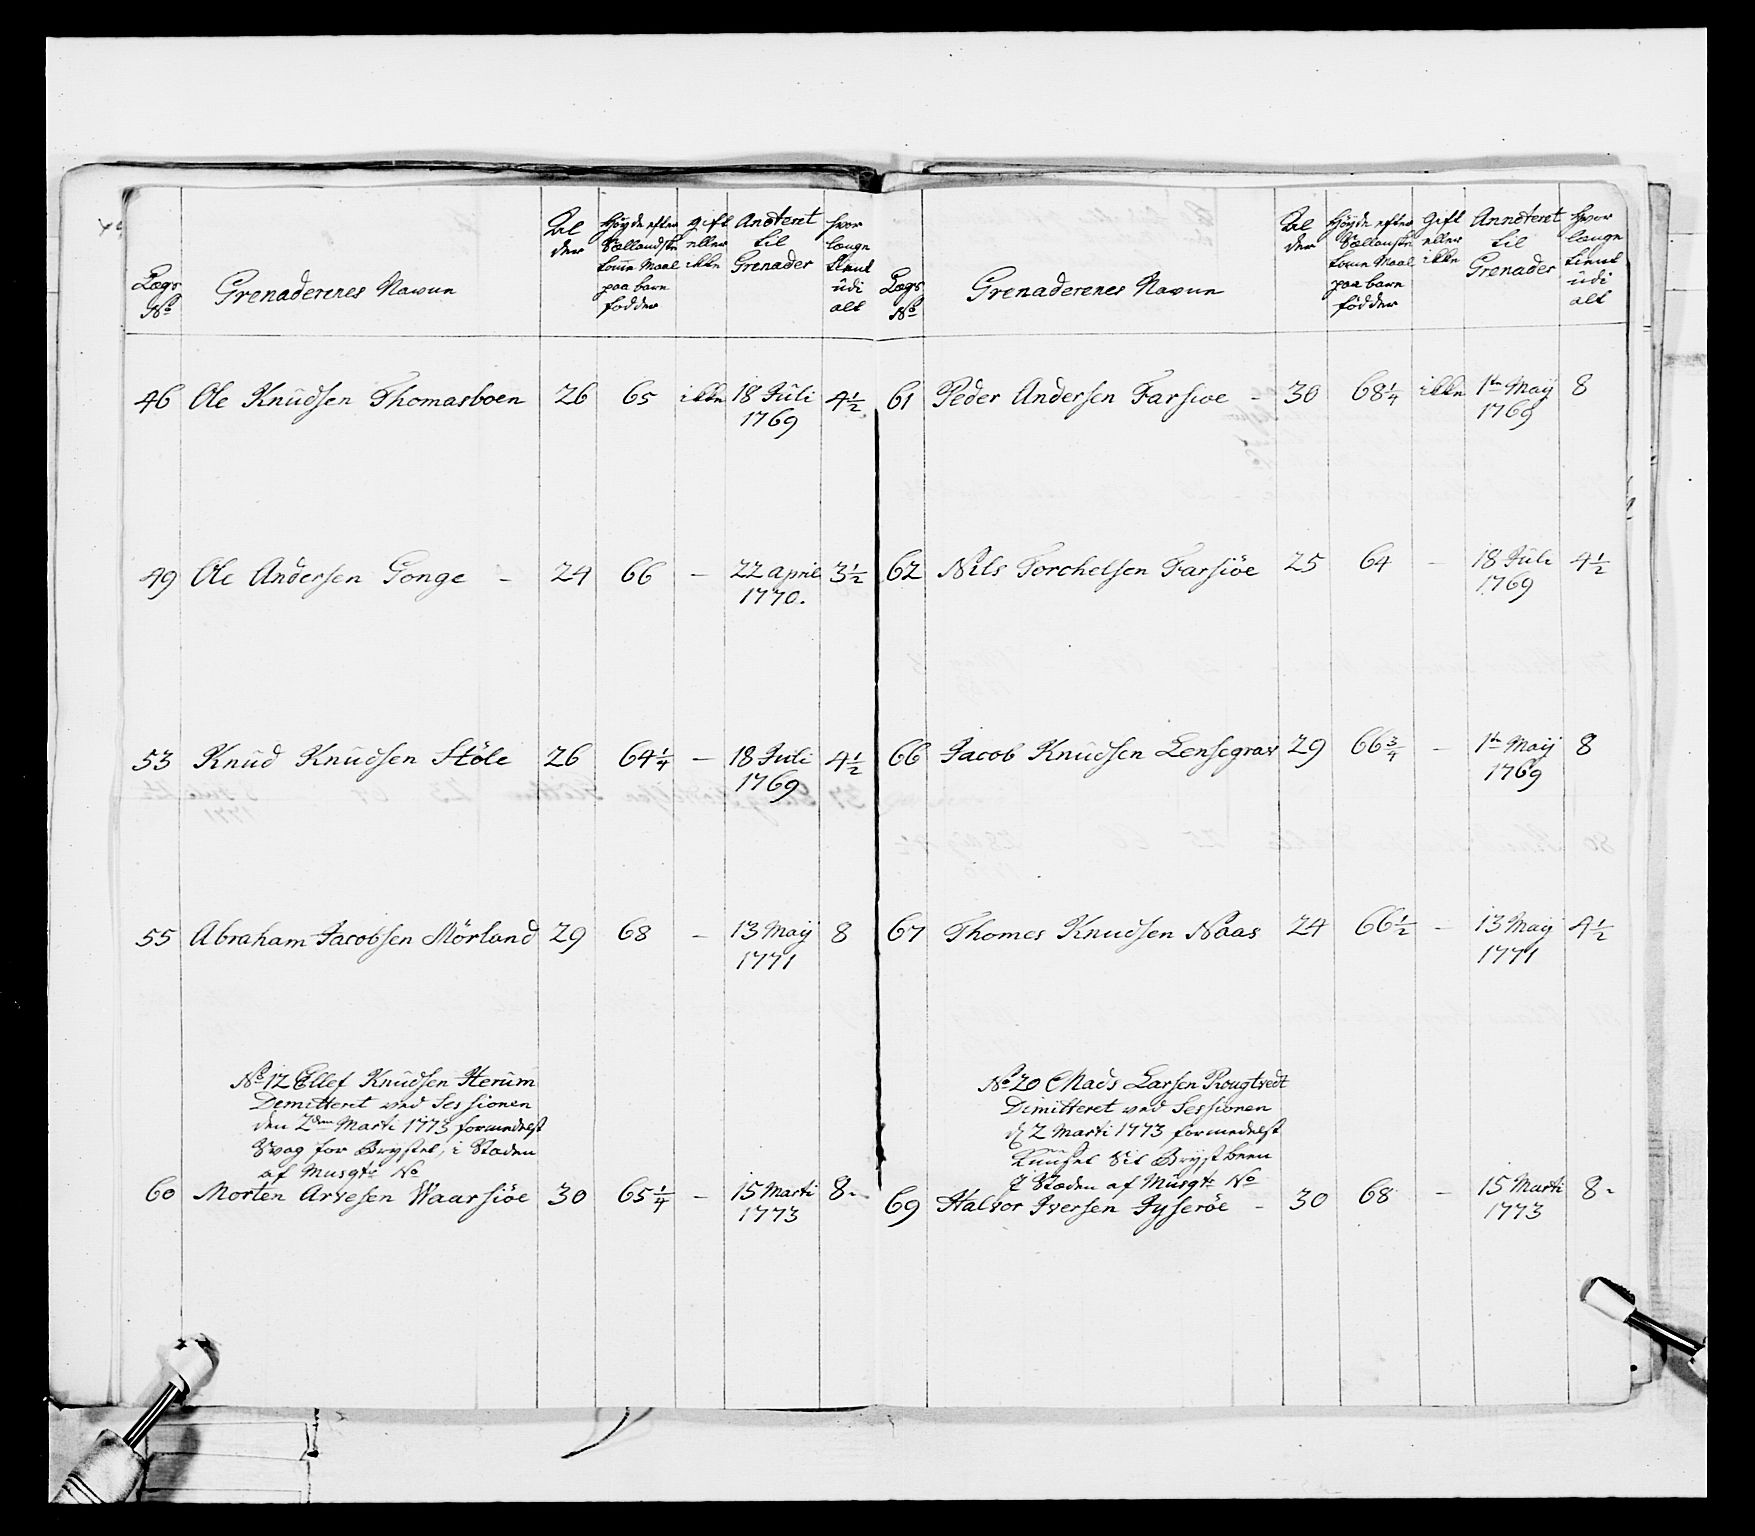 Lægs
No
Grenaderenes Navne
Al
der
Høyde efter
Siællandske
tome Maal
paa bare
fødder
gift
eller
ikke
Anoteret
til
Grenader
hvor
længe
tient
udi
alt
46 Ole Knudsen Thomasboen 26 65 ikke 18 Juli 1769 4½
49 Ole Andersen Gonge - 24 66 - 22 april 1770. 3½
53 Knud Knudsen Støle 26 64¼ - 18 Juli 1769 4½
55 Abraham Jacobsen Mörland 29 68 - 13 Maij 1771 8
No 12 Ellef Knudsen Herum
Demitteret ved Sessionen
den 2den Marti 1773 formedelst
Svag for Brystet, i Stæden
af Musqtr No
60 Morten Arvesen Waarsiöe 30 65¼ - 15 Marti 1773 8-
Lægs
No
Grenaderenes Navne
Al
der
Høyde efter
Siællanske
tome Maal
paa bare
fødder
Gift
eller
ikke
Annoteret
til
Grenader
hvor
længe
tient
udi
alt
61 Peder Andersen Farsioe - 30 68¼ ikke 1te Maij 1769 8
62 Nils Torchelsen Farsiöe 25 64 - 18 Juli 1769 4½
66 Jacob Knudsen Lensegrav 29 66¾ - 1te Maij 1769 8
67 Thomes Knudsen Naas 24 66½ - 13 Maij 1771 4½
No 20 Mads Larsen Rougtvedt
Dimitteret ved Sessionen
d 2 Marti 1773 formedelst
Knüset Sit Bryst been
I Stæden af Musqtr No
69 Halvor Iversen Jyseröe - 30 68 - 15 Marti 1773 8-